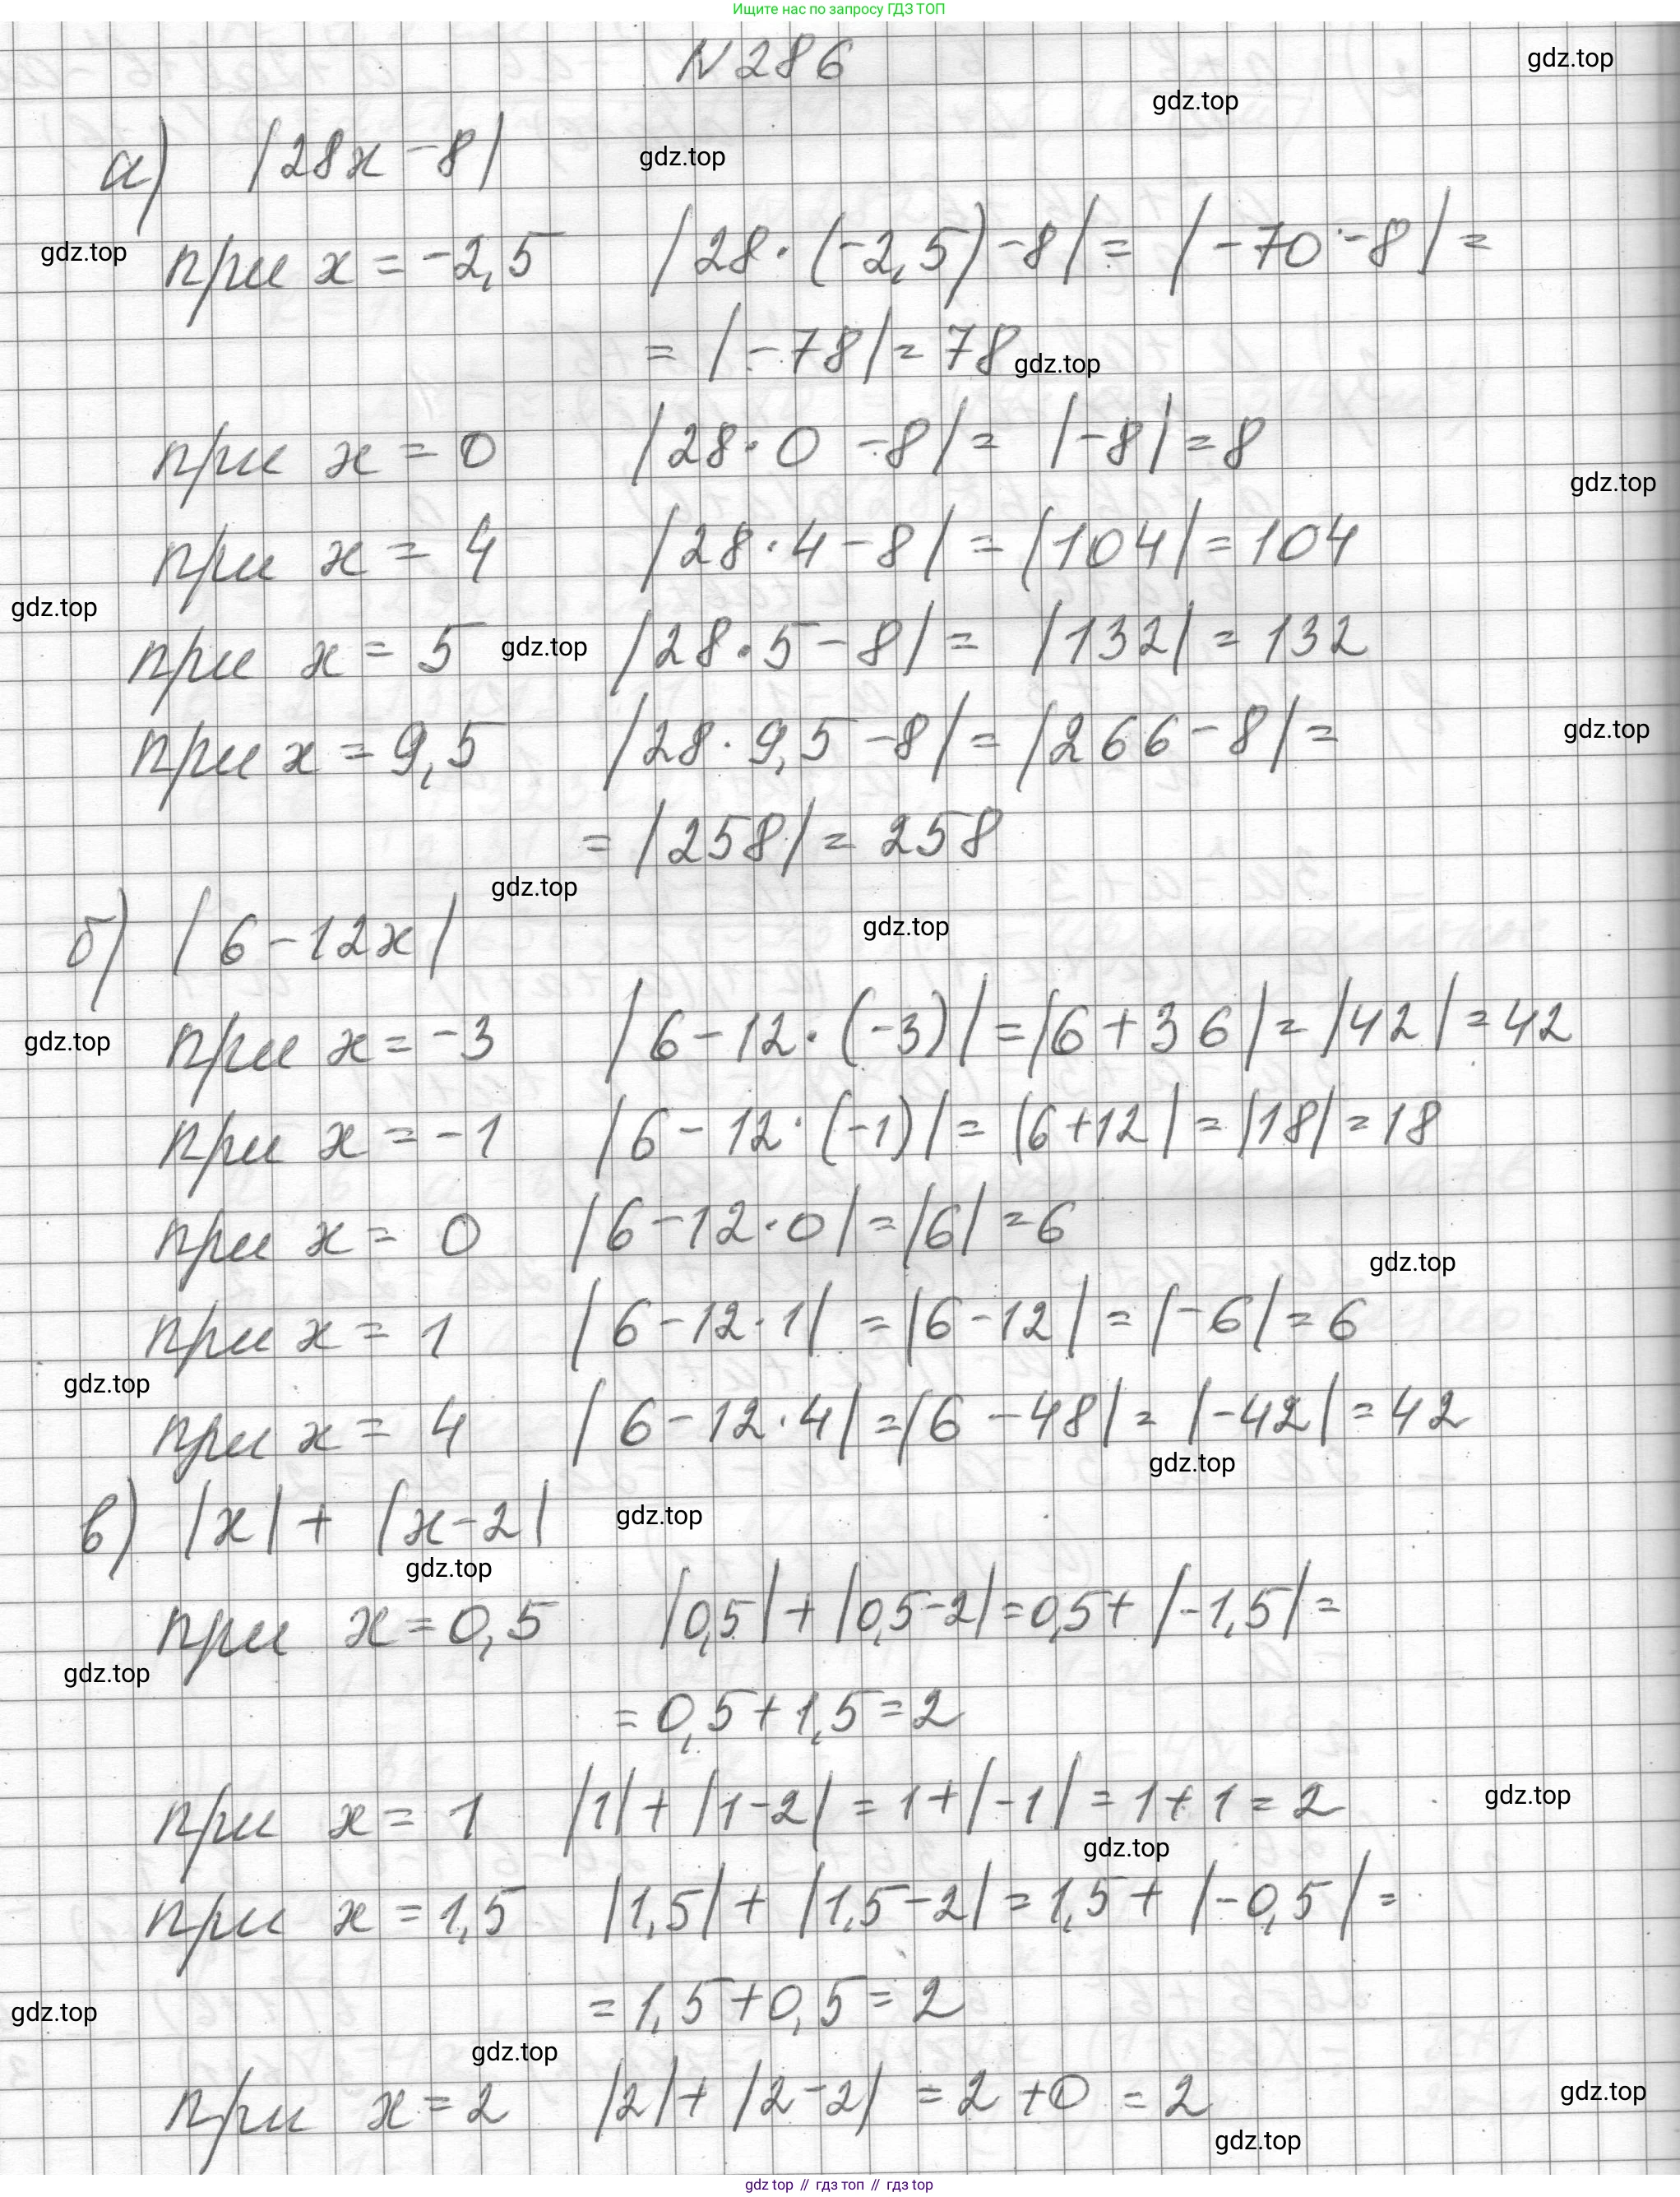 Ищите нас по запросу ГДЗ ТОП
N 286
gdz.top
gdz.top
а) |28x - 8|
gdz.top
gdz.top
при x = -2,5 |28·(-2,5) - 8| = |-70 - 8| =
= |-78| = 78
gdz.top
при x = 0 |28·0 - 8| = |-8| = 8
gdz.top
при x = 4 |28·4 - 8| = |104| = 104
gdz.top
при x = 5 gdz.top |28·5 - 8| = |132| = 132
при x = 9,5 |28·9,5 - 8| = |266 - 8| =
gdz.top
= |258| = 258
gdz.top
gdz.top
б) |6 - 12x|
gdz.top
при x = -3 |6 - 12·(-3)| = |6 + 36| = |42| = 42
при x = -1 |6 - 12·(-1)| = |6 + 12| = |18| = 18
при x = 0 |6 - 12·0| = |6| = 6
gdz.top
при x = 1 |6 - 12·1| = |6 - 12| = |-6| = 6
gdz.top
при x = 4 |6 - 12·4| = |6 - 48| = |-42| = 42
gdz.top
в) |x| + |x - 2|
gdz.top
gdz.top
при x = 0,5 |0,5| + |0,5 - 2| = 0,5 + |-1,5| =
gdz.top
= 0,5 + 1,5 = 2
gdz.top
при x = 1 |1| + |1 - 2| = 1 + |-1| = 1 + 1 = 2
gdz.top
при x = 1,5 |1,5| + |1,5 - 2| = 1,5 + |-0,5| =
= 1,5 + 0,5 = 2
gdz.top
gdz.top
при x = 2 |2| + |2 - 2| = 2 + 0 = 2
gdz.top
gdz.top
gdz top // гдз топ // gdz.top